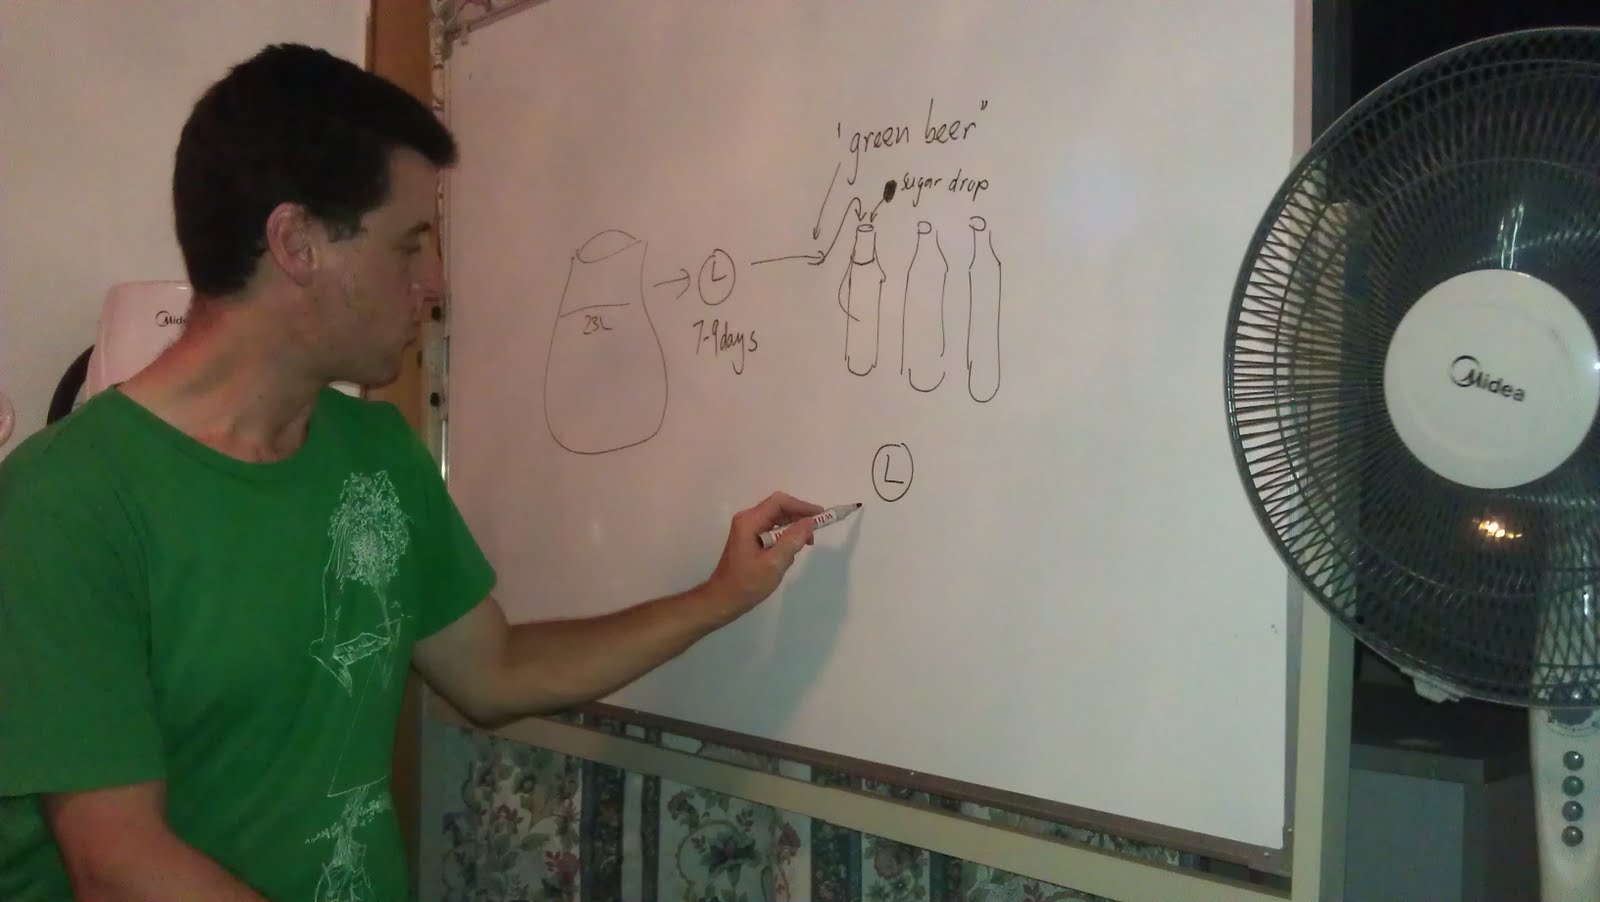 "green beer"
sugar drop
23L
L
7-9days
L
Midea
Midea